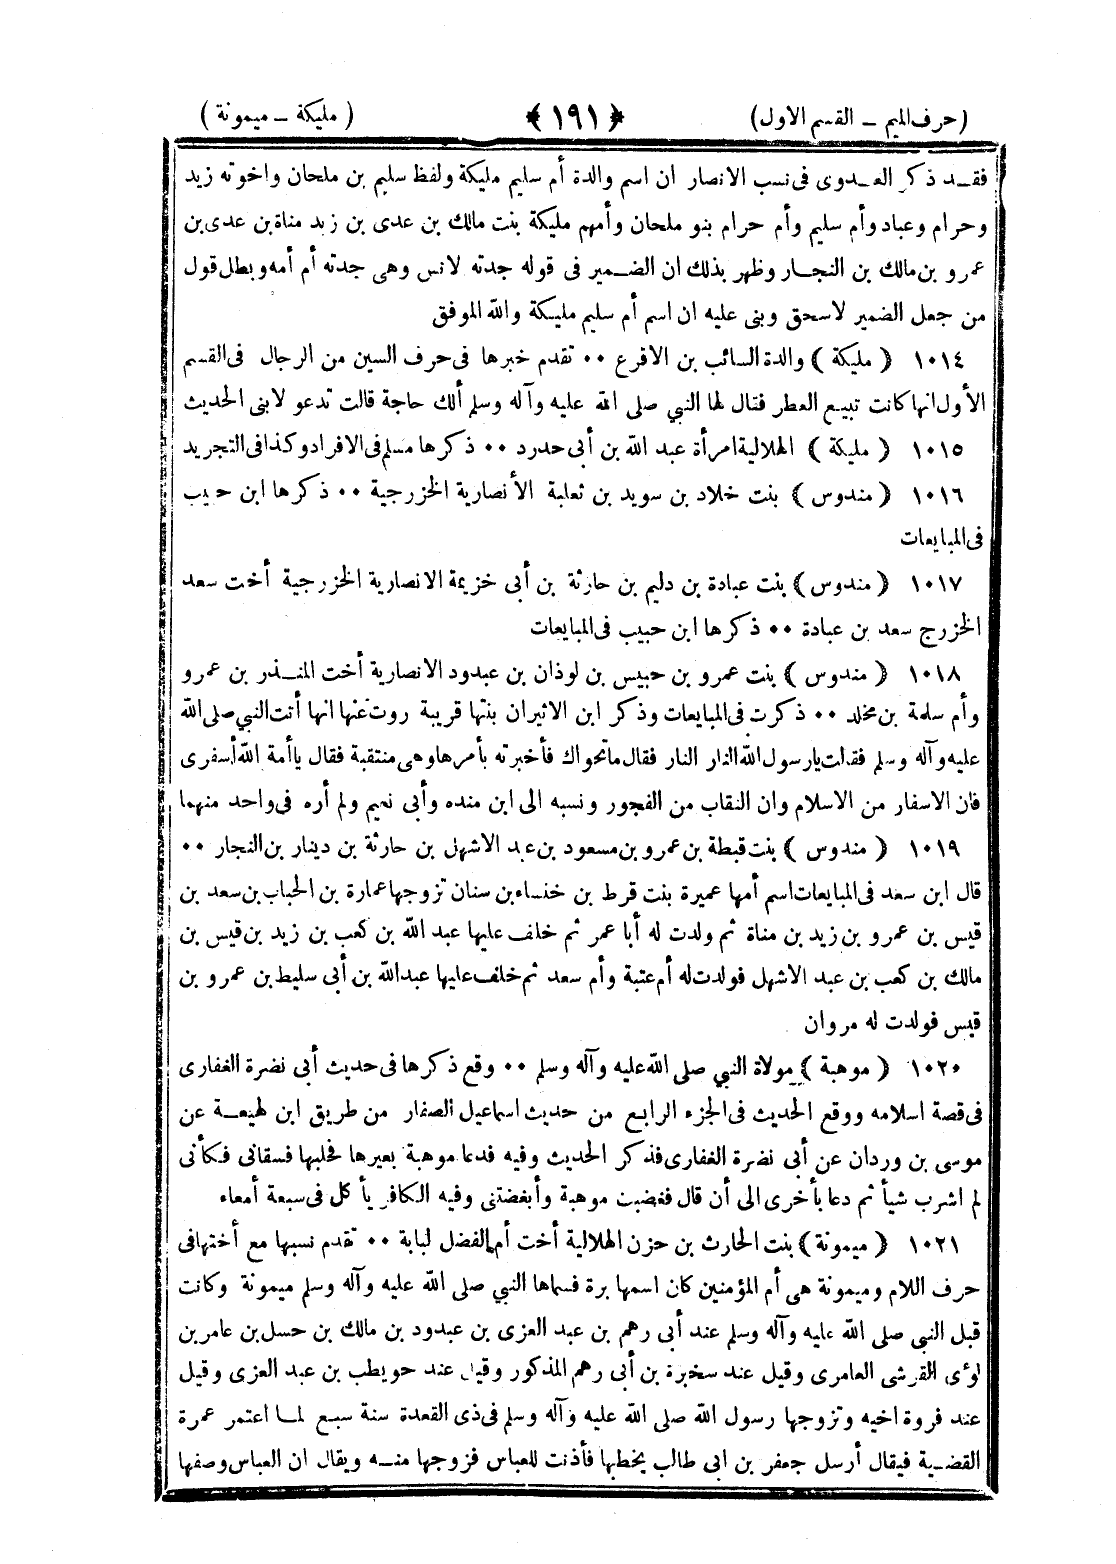 (حرف الميم ــ القسم الاول) ﴿ ١٩١ ﴾ ( مليكة ــ ميمونة )
فقــد ذكر العــدوى فى نسب الانصار ان اسم والدة أم سليم مليكة ولفظ سليم بن ملحان واخوته زيد
وحرام وعباد وأم سليم وأم حرام بنو ملحان وأمهم مليكة بنت مالك بن عدى بن زيد مناة بن عدى بن
عمرو بن مالك بن النجـار وظهر بذلك ان الضــمير فى قوله جدته لانس وهى جدته أم أمه وبطل قول
من جعل الضمير لاسحق وبنى عليه ان اسم أم سليم مليكة والله الموفق
١٠١٤ ( مليكة ) والدة السائب بن الاقرع ٠٠ تقدم خبرها فى حرف السين من الرجال فى القسم
الأول انها كانت تبيـع العطر فقال لها النبي صلى الله عليه وآله وسلم ألك حاجة قالت تدعو لابنى الحديث
١٠١٥ ( مليكة ) الهلالية امرأة عبد الله بن أبى حدرد ٠٠ ذكرها مسلم فى الافراد وكذا فى التجريد
١٠١٦ ( مندوس ) بنت خلاد بن سويد بن ثعلبة الأنصارية الخزرجية ٠٠ ذكرها ابن حبيب
فى المبايعات
١٠١٧ ( مندوس ) بنت عبادة بن دليم بن حارثة بن أبى خزيمة الانصارية الخزرجية أخت سعد
الخزرج سعد بن عبادة ٠٠ ذكرها ابن حبيب فى المبايعات
١٠١٨ ( مندوس ) بنت عمرو بن حبيس بن لوذان بن عبدود الانصارية أخت المنــذر بن عمرو
وأم سلمة بن مخلد ٠٠ ذكرت فى المبايعات وذكر ابن الاثير ان بنتها قريبة روت عنها انها أتت النبي صلى الله
عليه وآله وسلم فقالت يا رسول الله النار النار فقال ما نحواك فأخبرته بأمرها وهى منتقبة فقال يا أمة الله أسفرى
فان الاسفار من الاسلام وان النقاب من الفجور ونسبه الى ابن منده وأبى نعيم ولم أره فى واحد منهما
١٠١٩ ( مندوس ) بنت قبطة بن عمرو بن مسعود بن عبد الاشهل بن حارثة بن دينار بن النجار ٠٠
قال ابن سعد فى المبايعات اسم أمها عميرة بنت قرط بن خنساء بن سنان تزوجها عمارة بن الحباب بن سعد بن
قيس بن عمرو بن زيد بن مناة ثم ولدت له أبا عمر ثم خلف عليها عبد الله بن كعب بن زيد بن قيس بن
مالك بن كعب بن عبد الاشهل فولدت له أم عتبة وأم سعد ثم خلف عليها عبد الله بن أبى سليط بن عمرو بن
قيس فولدت له مروان
١٠٢٠ ( موهبة ) مولاة النبي صلى الله عليه وآله وسلم ٠٠ وقع ذكرها فى حديث أبى نضرة الغفارى
فى قصة اسلامه ووقع الحديث فى الجزء الرابع من حديث اسماعيل الصفار من طريق ابن لهيعــة عن
موسى بن وردان عن أبى نضرة الغفارى فذكر الحديث وفيه فدعا موهبة بعيرها فحلبها فسقانى فكأنى
لم اشرب شيأ ثم دعا بأخرى الى أن قال فغضبت موهبة وأبغضتنى وفيه الكافر يأكل فى سبعة أمعاء
١٠٢١ ( ميمونة ) بنت الحارث بن حزن الهلالية أخت أم الفضل لبابة ٠٠ تقدم نسبها مع أختها فى
حرف اللام وميمونة هى أم المؤمنين كان اسمها برة فسماها النبي صلى الله عليه وآله وسلم ميمونة وكانت
قبل النبي صلى الله عليه وآله وسلم عند أبى رهم بن عبد العزى بن عبدود بن مالك بن حسل بن عامر بن
لوءى القرشى العامرى وقيل عند سخبرة بن أبى رهم المذكور وقيل عند حويطب بن عبد العزى وقيل
عند فروة اخيه وتزوجها رسول الله صلى الله عليه وآله وسلم فى ذى القعدة سنة سبع لمـا اعتمر عمرة
القضــية فيقال أرسل جعفر بن ابى طالب يخطبها فأذنت للعباس فزوجها منــه ويقال ان العباس وصفها